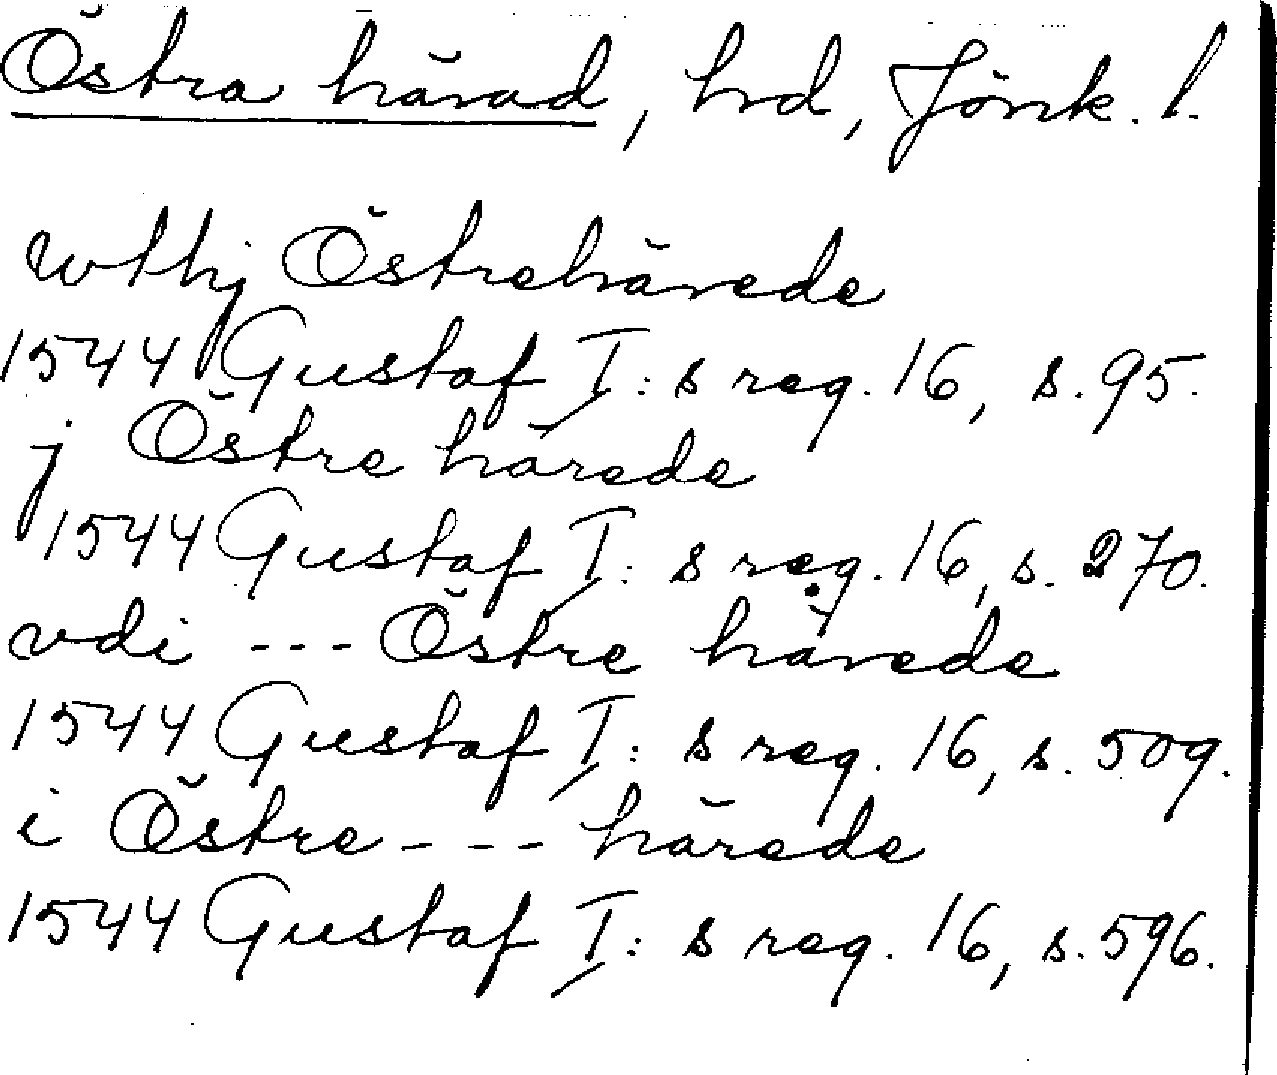 Östra härad, hrd, Jönk. l.
wthj Östrehärede
1544 Gustaf I: s reg. 16, s. 95.
j Östre härede
1544 Gustaf I: s reg. 16, s. 270.
vdi --- Östre härede
1544 Gustaf I: s reg. 16, s. 509.
i Östre --- härede
1544 Gustaf I: s reg. 16, s. 596.